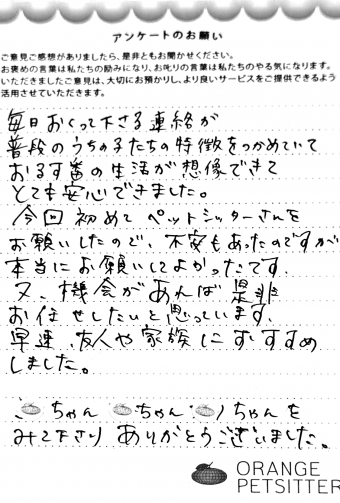 アンケートのお願い
ご意見ご感想がありましたら、是非ともお聞かせください。
お褒めの言葉は私たちの励みになり、お叱りの言葉は私たちのやる気になります。
いただきましたご意見は、大切にお預かりし、より良いサービスをご提供できるよう
活用させていただきます。
毎日おくって下さる連絡が
普段のうちの子たちの特徴をつかめていて
おるす番の生活が想像できて
とても安心できました。
今回初めてペットシッターさんを
お願いしたので、不安もあったのですが
本当にお願いしてよかったです。
又、機会があれば是非
お任せしたいと思っています。
早速、友人や家族におすすめ
しました。
ちゃん ちゃん ちゃんを
みて下さり ありがとうございました。
ORANGE
PETSITTER